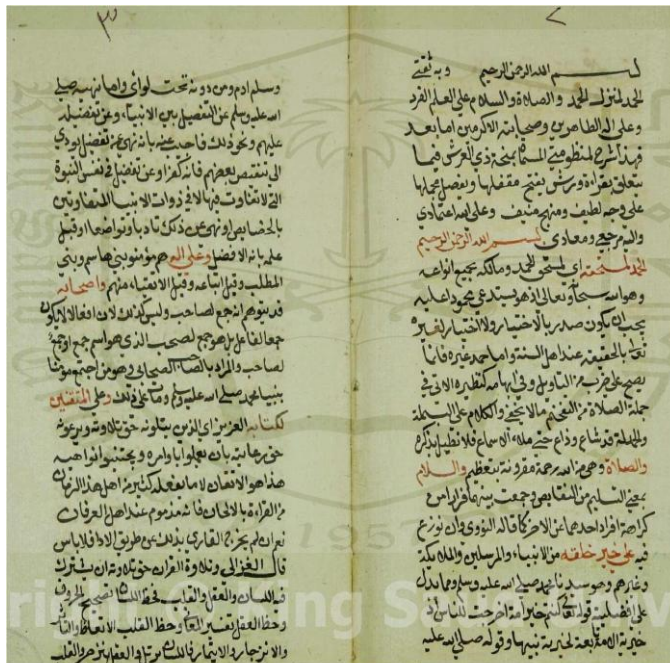 ٢
بسم الله الرحمن الرحيم وبه ثقتي
الحمد لمنزل الحمد والصلاة والسلام على العلم الفرد
وعلى اله الطاهرين وصحابته الاكرمين اما بعد
فهذا شرح لمنظومتي المسماة بمنحة ذي العرش فيما
يتعلق بقراءة ورش يفتح مقفلها ويفصل مجملها
على وجه لطيف ومنهج منيف وعلى الله اعتمادي
واليه مرجعي ومعادي بسم الله الرحمن الرحيم
الحمد لمستحقه اي المستحق للحمد ومالكه بجميع انواعه
وهو الله سبحانه وتعالى اذ هو يستدعي محمودا عليه
يجب ان يكون صدر بالاختيار ولا اختيار لغيره
تعالى بالحقيقة عند اهل السنة واما حمد غيره فانما
يصح على ضرب من التاويل وفي ابهامه كنظيره الاتي في
جملة الصلاة من التفخيم ما لا يخفى والكلام على البسملة
والحمدلة قد شاع وذاع حتى ملاء الاسماع فلا نطيل بذكره
والصلاة وهي من الله رحمة مقرونة بتعظيم والسلام
بمعنى التسليم من النقايص وجمعت بينهما فرارا من
كراهة افراد احدهما عن الاخر كما قاله النووي وان نوزع
فيه على خير خلقه من الانبياء والمرسلين والملائكة
وغيرهم وهو سيدنا محمد صلى الله عليه وسلم ومما يدل
على افضليته قوله تعالى كنتم خير امة اخرجت للناس اذ
خيرية الامة تابعة لخيرية نبيها وقوله صلى الله عليه
٣
وسلم ادم ومن دونه تحت لوائي واما نهيه صلى
الله عليه وسلم عن التفضيل بين الانبياء وعن تفضيله
عليهم ونحو ذلك فاجيب عنه بانه نهي عن تفضيل يودي
الى تنقيص بعضهم فانه كفر او عن تفضيل في نفس النبوة
التي لا تتفاوت فيها لا في ذوات الانبيا المتفاوتين
بالخصايص او نهي عن ذلك تادبا وتواضعا او قبل
علمه بانه الافضل وعلى اله هم مؤمنو بني هاشم وبني
المطلب وقيل اتباعه وقيل الاتقياء منهم واصحابه
قد يتوهم انه جمع لصاحب وليس كذلك لان افعالا لا يكون
جمعا لفاعل بل هو جمع لصحب الذي هو اسم جمع او جمع
لصاحب والمراد بالصاحب الصحابي وهو من اجتمع مؤمنا
بنبينا محمد صلى الله عليه وسلم ومات على ذلك وعلى المتقنين
لكتابه العزيز اي الذين يتلونه حق تلاوته ويرعونه
حق رعايته بان يعملوا باوامره ويجتنبوا نواهيه
هذا هو الاتقان لا ما يفعله كثير من اهل هذا الزمان
من القراءة بالالحان فانه مذموم عند اهل العرفان
نعم ان لم يخرج القاري بذلك عن طريق الادا فلا باس
قال الغزالي وتلاوة القران حق تلاوته ان يشترك
فيه اللسان والعقل والقلب فحظ اللسان تصحيح الحروف
وحظ العقل تفسير المعاني وحظ القلب الاتعاظ والتاثر
والانزجار والايتمار فاللسان يرتل والعقل يترجم والقلب
1957